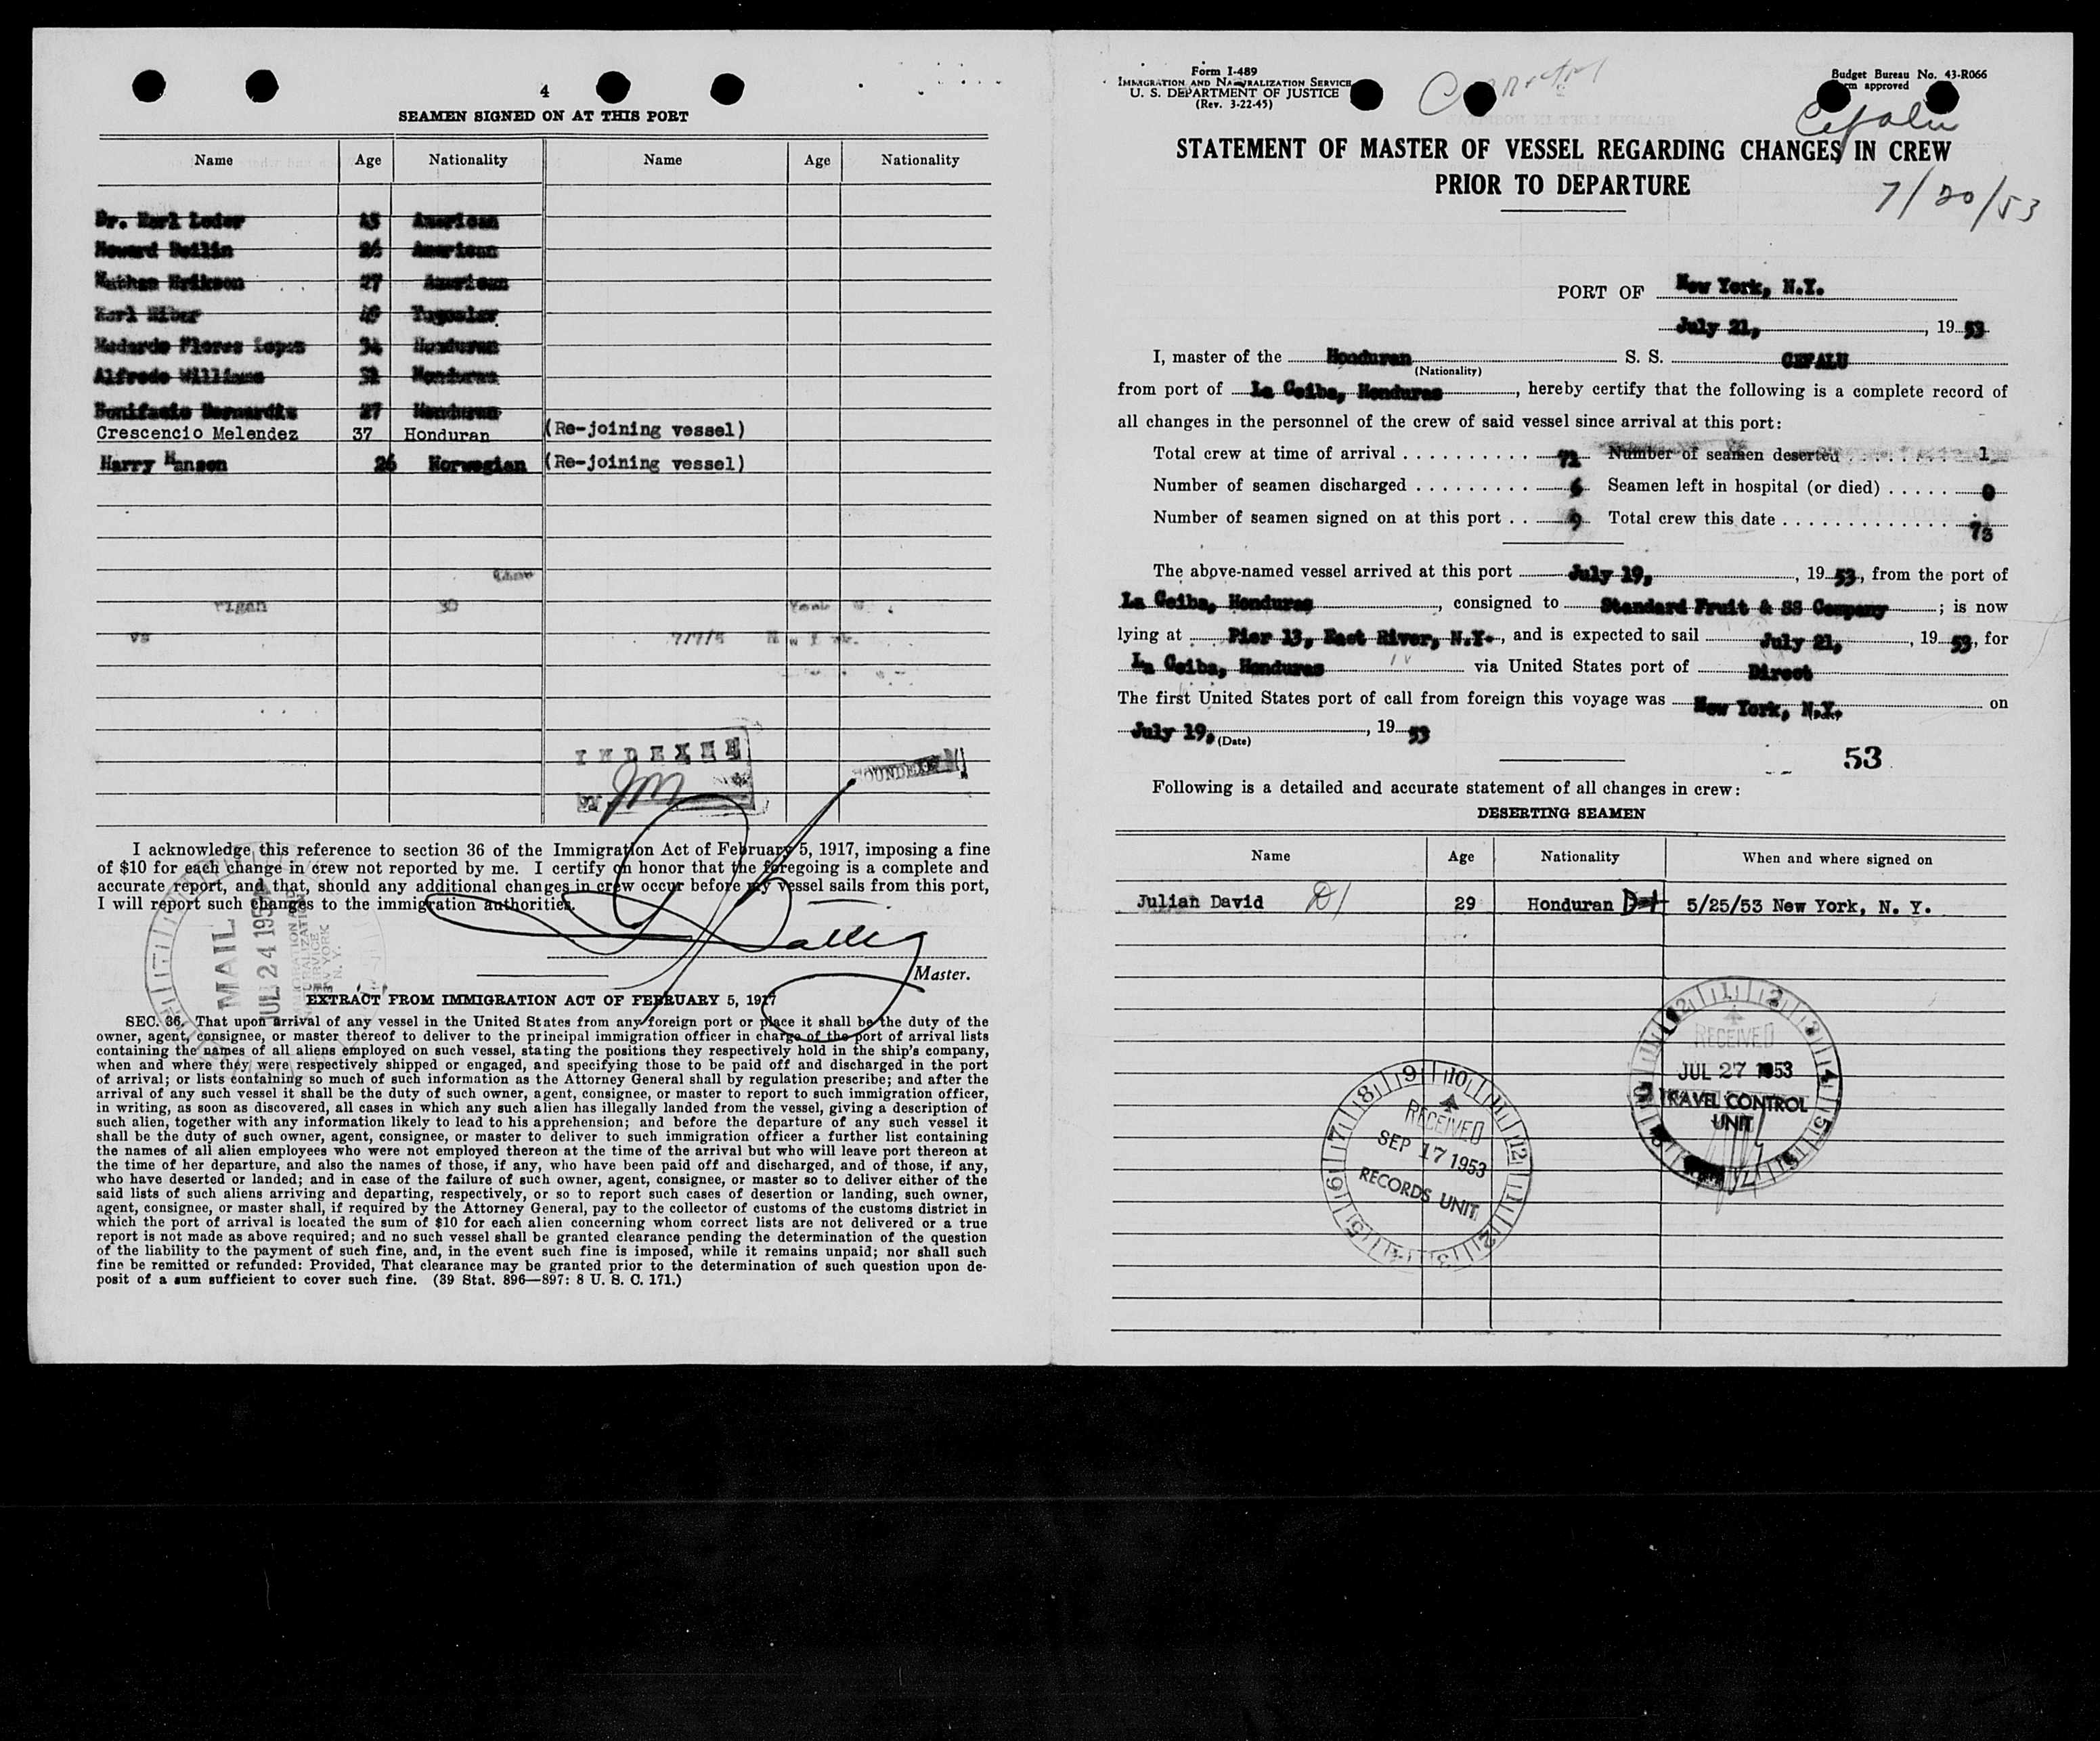 4
SEAMEN SIGNED ON AT THIS PORT
Name Age Nationality Name Age Nationality
Dr. Karl Loder 45 American
Howard 26 American
Nathan Erikson 27 American
Karl 49 Yugoslav
Medardo Flores Lopez 34 Honduran
Alfredo Williams 32 Honduran
Bonifacio Bernardis 27 Honduran
Crescencio Melendez 37 Honduran (Re-joining vessel)
Harry Hansen 26 Norwegian (Re-joining vessel)
INDEXED
BY JM
I acknowledge this reference to section 36 of the Immigration Act of February 5, 1917, imposing a fine
of $10 for each change in crew not reported by me. I certify on honor that the foregoing is a complete and
accurate report, and that, should any additional changes in crew occur before my vessel sails from this port,
I will report such changes to the immigration authorities.
MAIL
JUL 24 195
IMMIGRATION AND
NATURALIZATION
SERVICE
NEW YORK
N. Y.
Master.
EXTRACT FROM IMMIGRATION ACT OF FEBRUARY 5, 1917
SEC. 36. That upon arrival of any vessel in the United States from any foreign port or place it shall be the duty of the
owner, agent, consignee, or master thereof to deliver to the principal immigration officer in charge of the port of arrival lists
containing the names of all aliens employed on such vessel, stating the positions they respectively hold in the ship's company,
when and where they were respectively shipped or engaged, and specifying those to be paid off and discharged in the port
of arrival; or lists containing so much of such information as the Attorney General shall by regulation prescribe; and after the
arrival of any such vessel it shall be the duty of such owner, agent, consignee, or master to report to such immigration officer,
in writing, as soon as discovered, all cases in which any such alien has illegally landed from the vessel, giving a description of
such alien, together with any information likely to lead to his apprehension; and before the departure of any such vessel it
shall be the duty of such owner, agent, consignee, or master to deliver to such immigration officer a further list containing
the names of all alien employees who were not employed thereon at the time of the arrival but who will leave port thereon at
the time of her departure, and also the names of those, if any, who have been paid off and discharged, and of those, if any,
who have deserted or landed; and in case of the failure of such owner, agent, consignee, or master so to deliver either of the
said lists of such aliens arriving and departing, respectively, or so to report such cases of desertion or landing, such owner,
agent, consignee, or master shall, if required by the Attorney General, pay to the collector of customs of the customs district in
which the port of arrival is located the sum of $10 for each alien concerning whom correct lists are not delivered or a true
report is not made as above required; and no such vessel shall be granted clearance pending the determination of the question
of the liability to the payment of such fine, and, in the event such fine is imposed, while it remains unpaid; nor shall such
fine be remitted or refunded: Provided, That clearance may be granted prior to the determination of such question upon de-
posit of a sum sufficient to cover such fine. (39 Stat. 896—897: 8 U. S. C. 171.)
Form I-489
IMMIGRATION AND NATURALIZATION SERVICE
U. S. DEPARTMENT OF JUSTICE
(Rev. 3-22-45)
Budget Bureau No. 43-R066
approved
Cefalu
STATEMENT OF MASTER OF VESSEL REGARDING CHANGES IN CREW
PRIOR TO DEPARTURE
7/20/53
PORT OF New York, N.Y.
July 21, , 19 53
I, master of the Honduran S. S. CEFALU
(Nationality)
from port of La Ceiba, Honduras , hereby certify that the following is a complete record of
all changes in the personnel of the crew of said vessel since arrival at this port:
Total crew at time of arrival 71 Number of seamen deserted 1
Number of seamen discharged 6 Seamen left in hospital (or died) 0
Number of seamen signed on at this port 9 Total crew this date 73
The above-named vessel arrived at this port July 19, , 19 53, from the port of
La Ceiba, Honduras , consigned to Standard Fruit & SS Company ; is now
lying at Pier 13, East River, N.Y. , and is expected to sail July 21, , 19 53, for
La Ceiba, Honduras via United States port of Direct
The first United States port of call from foreign this voyage was New York, N.Y. on
July 19, , 19 53
(Date)
53
Following is a detailed and accurate statement of all changes in crew:
DESERTING SEAMEN
Name Age Nationality When and where signed on
Julian David D/ 29 Honduran 5/25/53 New York, N. Y.
RECEIVED
JUL 27 1953
TRAVEL CONTROL
UNIT
RECEIVED
SEP 17 1953
RECORDS UNIT